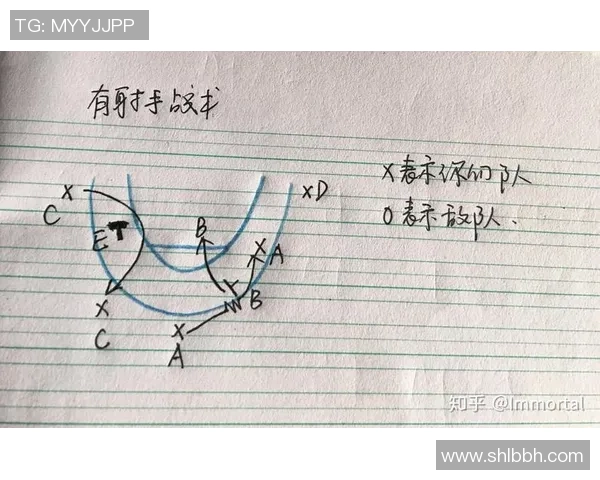 TG: MYYJJPP
有射手战术
X表示你的队
O表示敌队.
X
C
E
B
X
A
XD
X
C
B
X
A
知乎 @Immortal
www.shlbbh.com